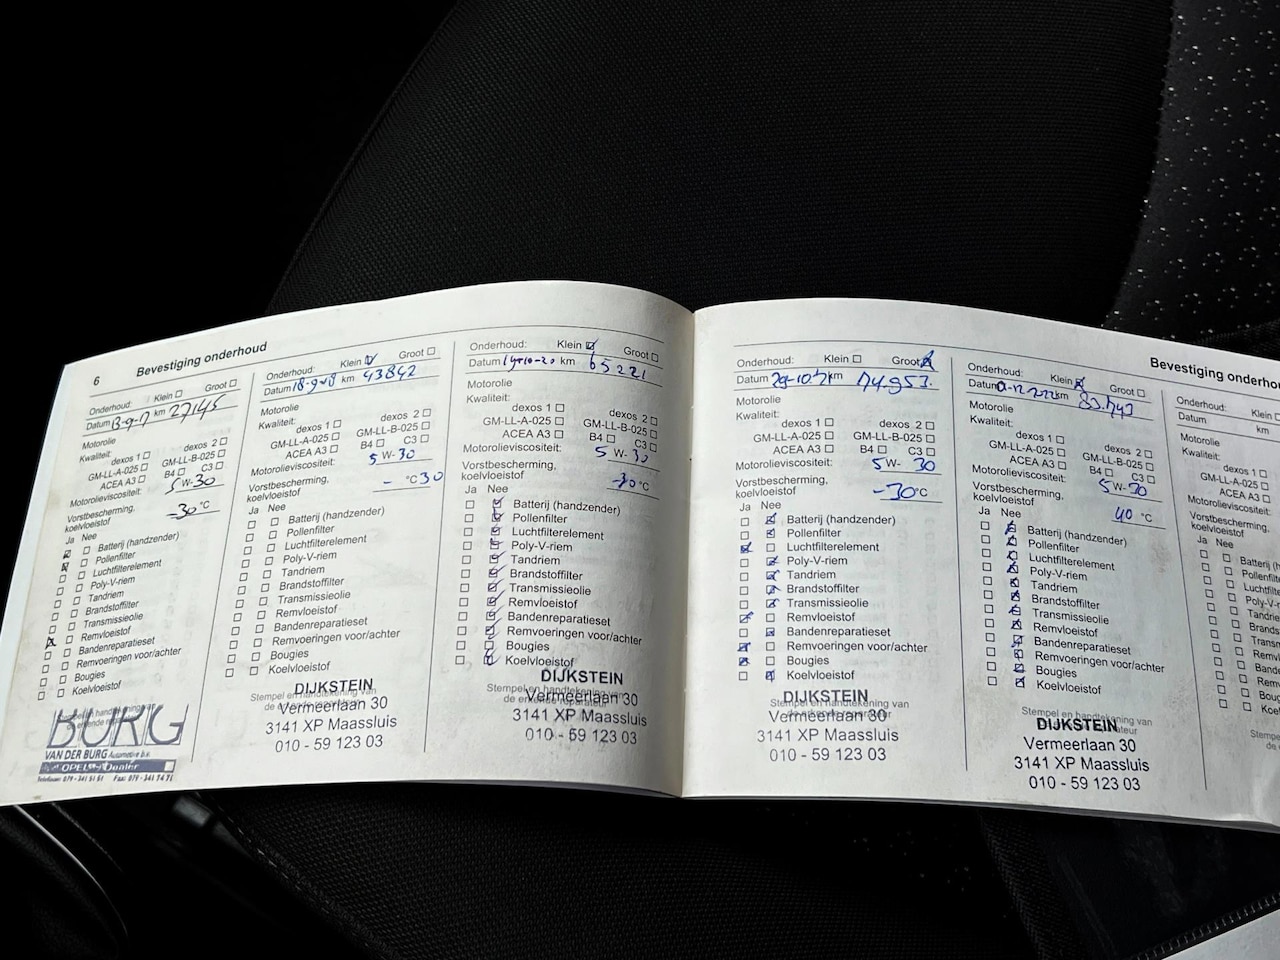 6 Bevestiging onderhoud
Onderhoud: Klein Groot
Datum 13-9-17 km 27145
Motorolie
Kwaliteit:
dexos 1 dexos 2
GM-LL-A-025 GM-LL-B-025
ACEA A3 B4 C3
Motorolieviscositeit: 5 W-30
Vorstbescherming,
koelvloeistof -30 °C
Ja Nee
Batterij (handzender)
Pollenfilter
Luchtfilterelement
Poly-V-riem
Tandriem
Brandstoffilter
Transmissieolie
Remvloeistof
Bandenreparatieset
Remvoeringen voor/achter
Bougies
Koelvloeistof
BURG
VAN DER BURG Automotive b.v.
OPEL Dealer
Telefoon: 079 - 341 51 51 Fax: 079 - 341 74 71
Onderhoud: Klein Groot
Datum km 43842
Motorolie
Kwaliteit:
dexos 1 dexos 2
GM-LL-A-025 GM-LL-B-025
ACEA A3 B4 C3
Motorolieviscositeit: 5 W-30
Vorstbescherming,
koelvloeistof - °C 30
Ja Nee
Batterij (handzender)
Pollenfilter
Luchtfilterelement
Poly-V-riem
Tandriem
Brandstoffilter
Transmissieolie
Remvloeistof
Bandenreparatieset
Remvoeringen voor/achter
Bougies
Koelvloeistof
Stempel en handtekening van
de erkende reparateur
DIJKSTEIN
Vermeerlaan 30
3141 XP Maassluis
010 - 59 123 03
Onderhoud: Klein Groot
Datum km 65221
Motorolie
Kwaliteit:
dexos 1 dexos 2
GM-LL-A-025 GM-LL-B-025
ACEA A3 B4 C3
Motorolieviscositeit: 5 W-30
Vorstbescherming,
koelvloeistof -30 °C
Ja Nee
Batterij (handzender)
Pollenfilter
Luchtfilterelement
Poly-V-riem
Tandriem
Brandstoffilter
Transmissieolie
Remvloeistof
Bandenreparatieset
Remvoeringen voor/achter
Bougies
Koelvloeistof
Stempel en handtekening van
de erkende reparateur
DIJKSTEIN
Vermeerlaan 30
3141 XP Maassluis
010 - 59 123 03
Onderhoud: Klein Groot
Datum km 74.953
Motorolie
Kwaliteit:
dexos 1 dexos 2
GM-LL-A-025 GM-LL-B-025
ACEA A3 B4 C3
Motorolieviscositeit: 5 W- 30
Vorstbescherming,
koelvloeistof -30 °C
Ja Nee
Batterij (handzender)
Pollenfilter
Luchtfilterelement
Poly-V-riem
Tandriem
Brandstoffilter
Transmissieolie
Remvloeistof
Bandenreparatieset
Remvoeringen voor/achter
Bougies
Koelvloeistof
DIJKSTEIN
Vermeerlaan 30
3141 XP Maassluis
010 - 59 123 03
Bevestiging onderhou
Onderhoud: Klein Groot
Datum km 83.743
Motorolie
Kwaliteit:
dexos 1 dexos 2
GM-LL-A-025 GM-LL-B-025
ACEA A3 B4 C3
Motorolieviscositeit: 5 W-30
Vorstbescherming,
koelvloeistof 40 °C
Ja Nee
Batterij (handzender)
Pollenfilter
Luchtfilterelement
Poly-V-riem
Tandriem
Brandstoffilter
Transmissieolie
Remvloeistof
Bandenreparatieset
Remvoeringen voor/achter
Bougies
Koelvloeistof
Stempel en handtekening van
DIJKSTEIN
Vermeerlaan 30
3141 XP Maassluis
010 - 59 123 03
Onderhoud: Klein
Datum km
Motorolie
Kwaliteit:
dexos 1
GM-LL-A-025
ACEA A3
Motorolieviscositeit:
Vorstbescherming,
koelvloeistof
Ja Nee
Batterij (h
Pollenfilte
Luchtfilte
Poly-V-
Tandrie
Brands
Transm
Remv
Band
Rem
Bou
Koe
Stempe